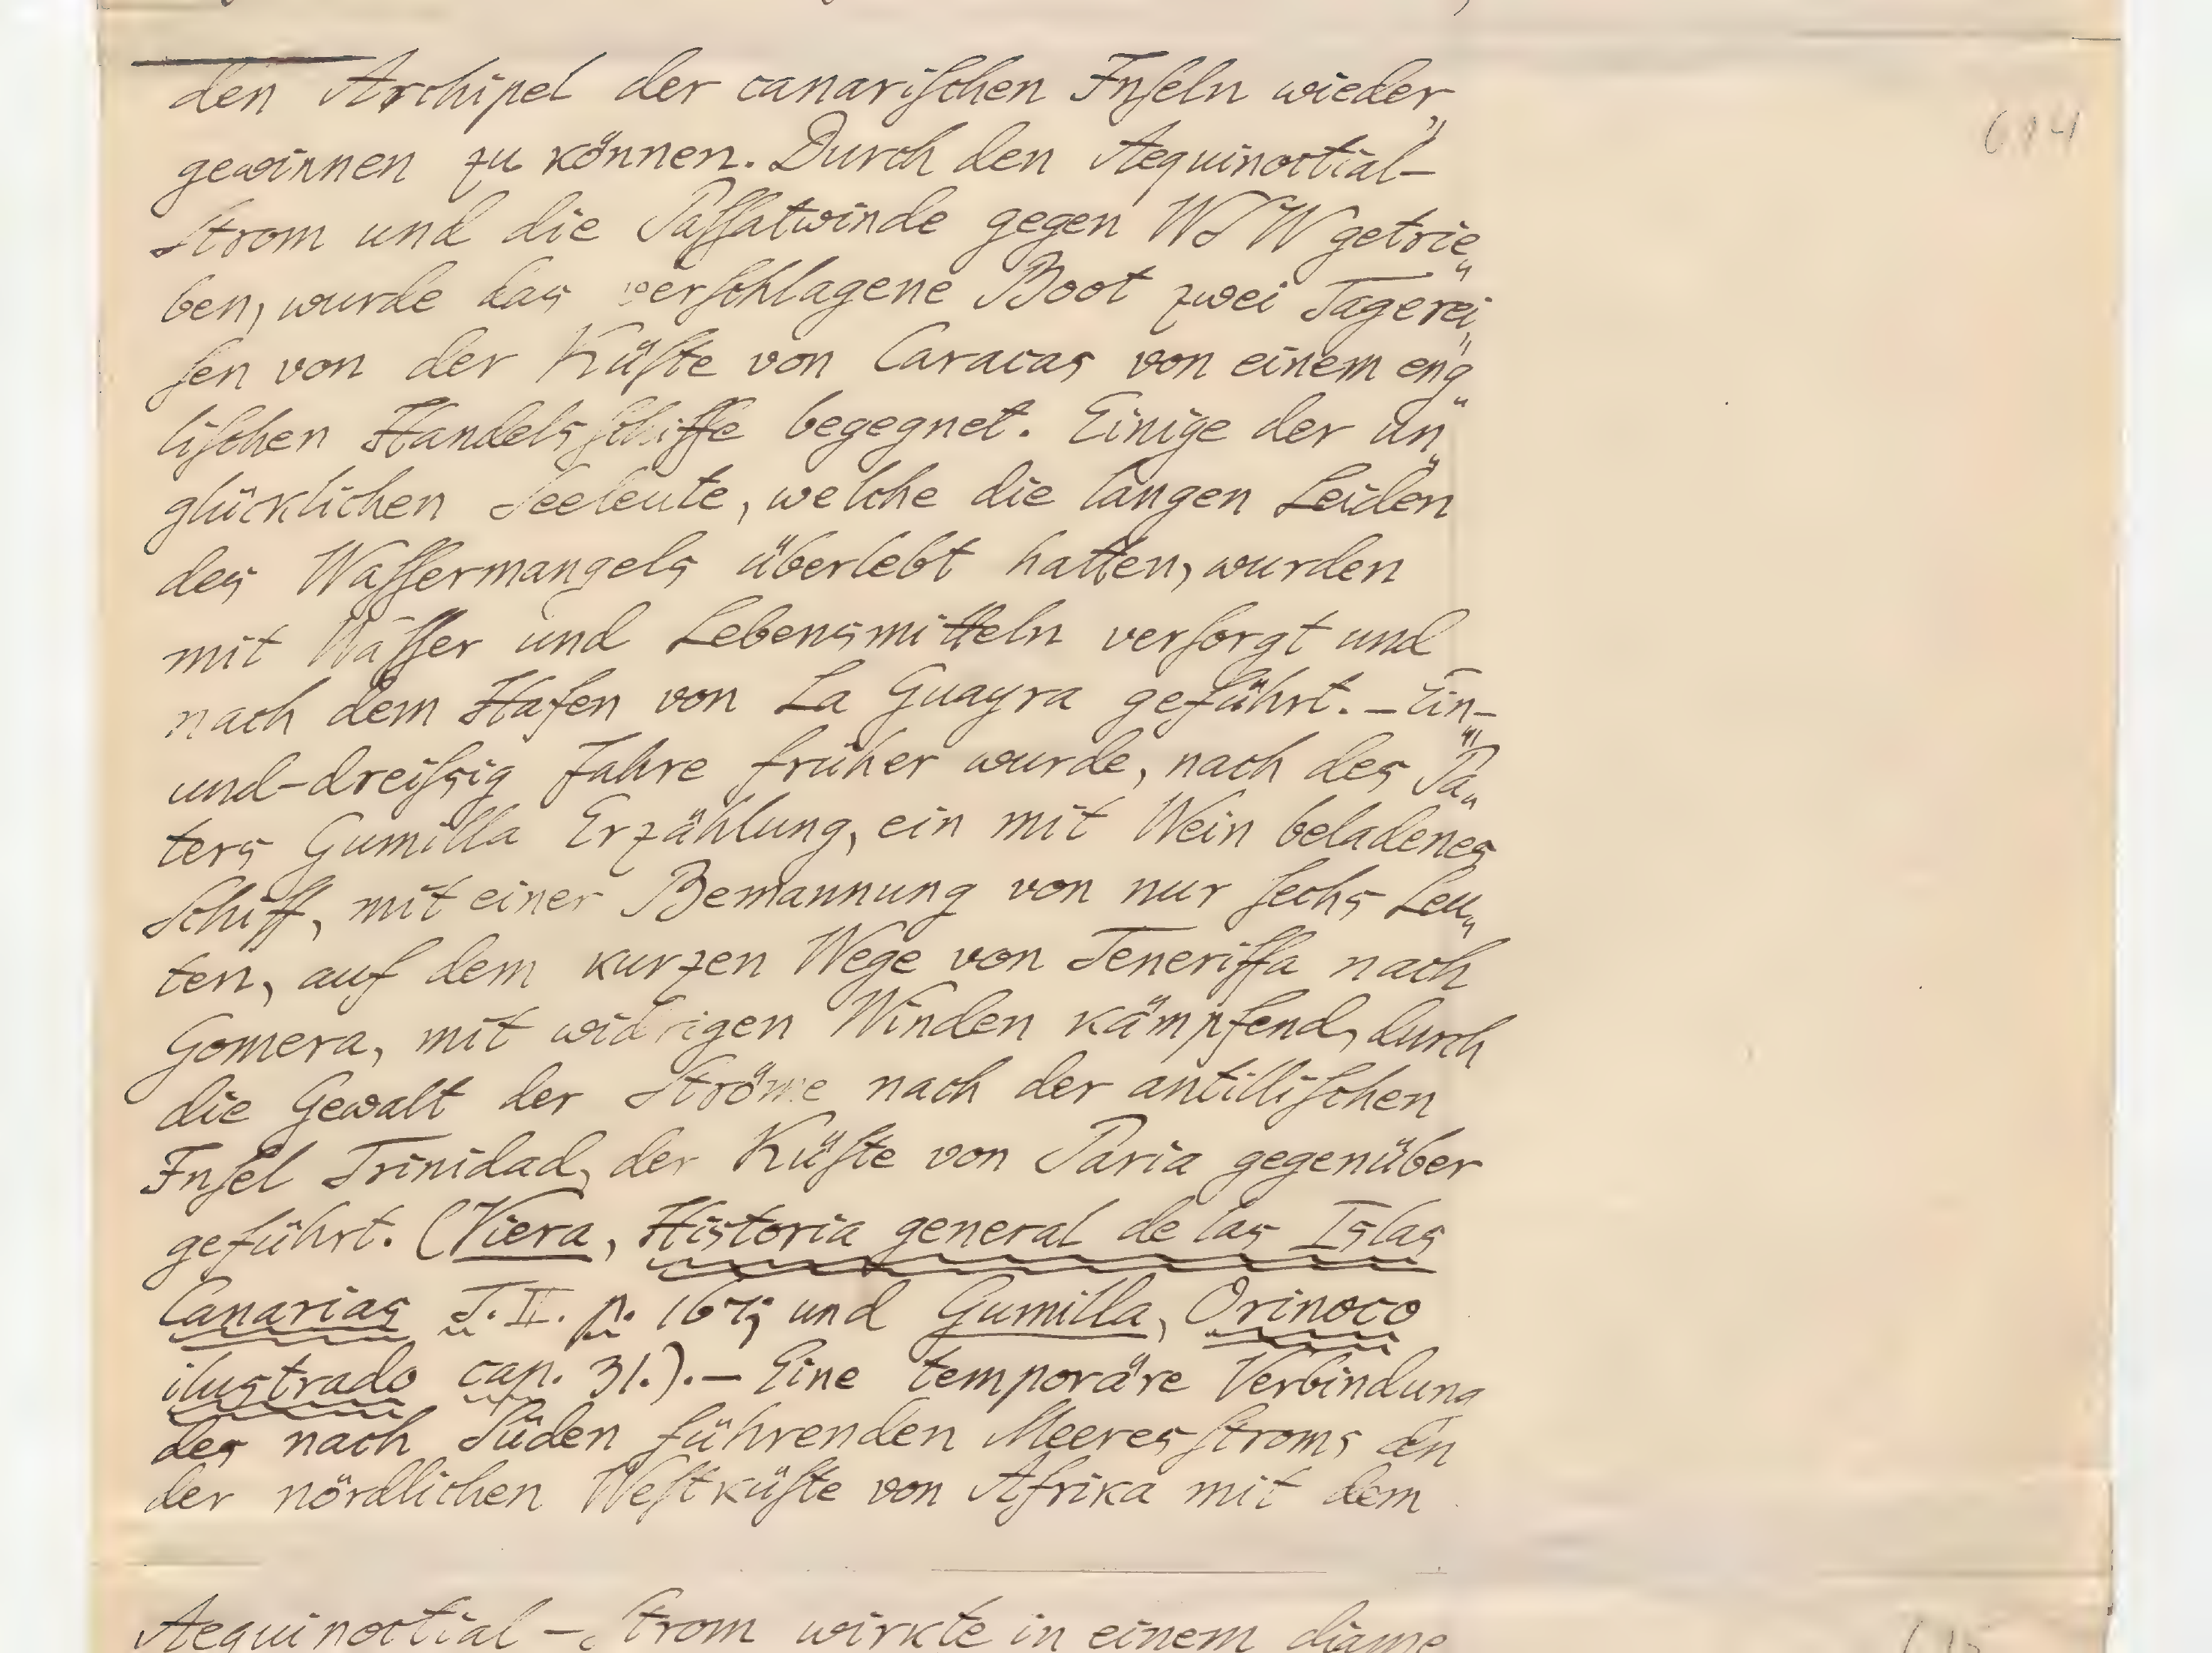 den Archipel der canariſchen Inſeln wieder„
gewinnen zu können. Durch den Aequinoctial-
Strom und die Paſſatwinde gegen WSW getrie„
ben, wurde das verſchlagene Boot zwei Tagerei„
ſen von der Küſte von Caracas von einem eng„
liſchen Handelsſchiffe begegnet. Einige der un„
glücklichen Seeleute, welche die langen Leiden
des Waſſermangels überlebt hatten, wurden
mit Waſſer und Lebensmitteln verſorgt und
nach dem Hafen von La Guayra geführt. – Ein-
und-dreiſsig Jahre früher wurde, nach des Pa„
ters Gumilla Erzählung, ein mit Wein beladenes
Schiff, mit einer Bemannung von nur ſechs Leu„
ten, auf dem kurzen Wege von Teneriffa nach
Gomera, mit widrigen Winden kämpfend, durch
die Gewalt der Ströme nach der antilliſchen
Inſel Trinidad, der Küſte von Paria gegenüber
geführt. (Viera, Historia general de las Islas
Canarias T. II. p. 167; und Gumilla, Orinoco
ilustrado cap. 31.). – Eine temporäre Verbindung
des nach Süden führenden Meeresſtroms an
der nördlichen Weſtküſte von Afrika mit dem
614
Aequinoctial-Strom wirkte in einem diame
615